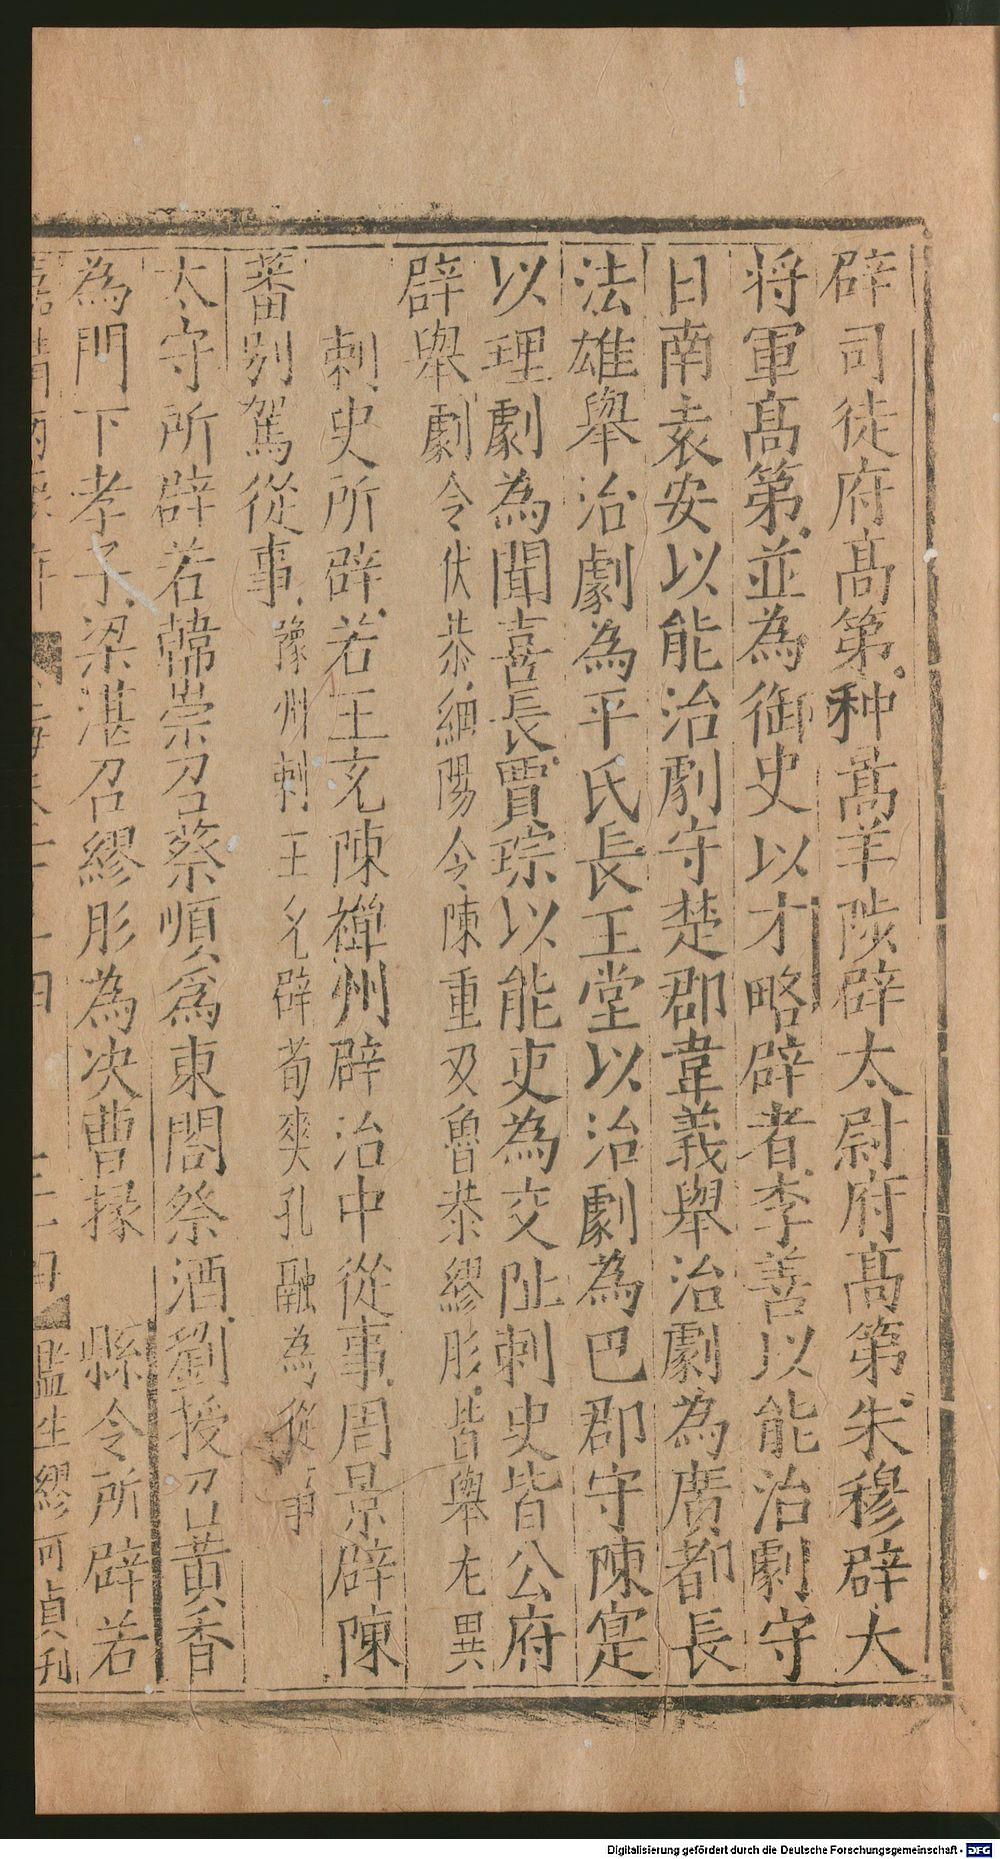 辟司徒府髙第种暠羊陟辟太尉府髙第朱穆辟大
将軍髙第並為御史以才略辟者李善以能治劇守
日南袁安以能治劇守楚郡韋義舉治劇為廣都長
法雄舉治劇為平氏長王堂以治劇為巴郡守陳寔
以理劇為聞喜長賈琮以能吏為交阯刺史皆公府
辟舉劇令伏恭緱陽令陳重及魯恭繆肜皆舉尤異
刺史所辟若王充陳禪州辟治中從事周景辟陳
蕃别駕從事豫州刺王允辟荀爽孔融為從事
太守所辟若韓崇召蔡順爲東閤祭酒劉授召黃香
為門下孝子梁湛召繆肜為决曹掾 縣令所辟若
監生繆可貞刋
Digitalisierung gefördert durch die Deutsche Forschungsgemeinschaft - DFG